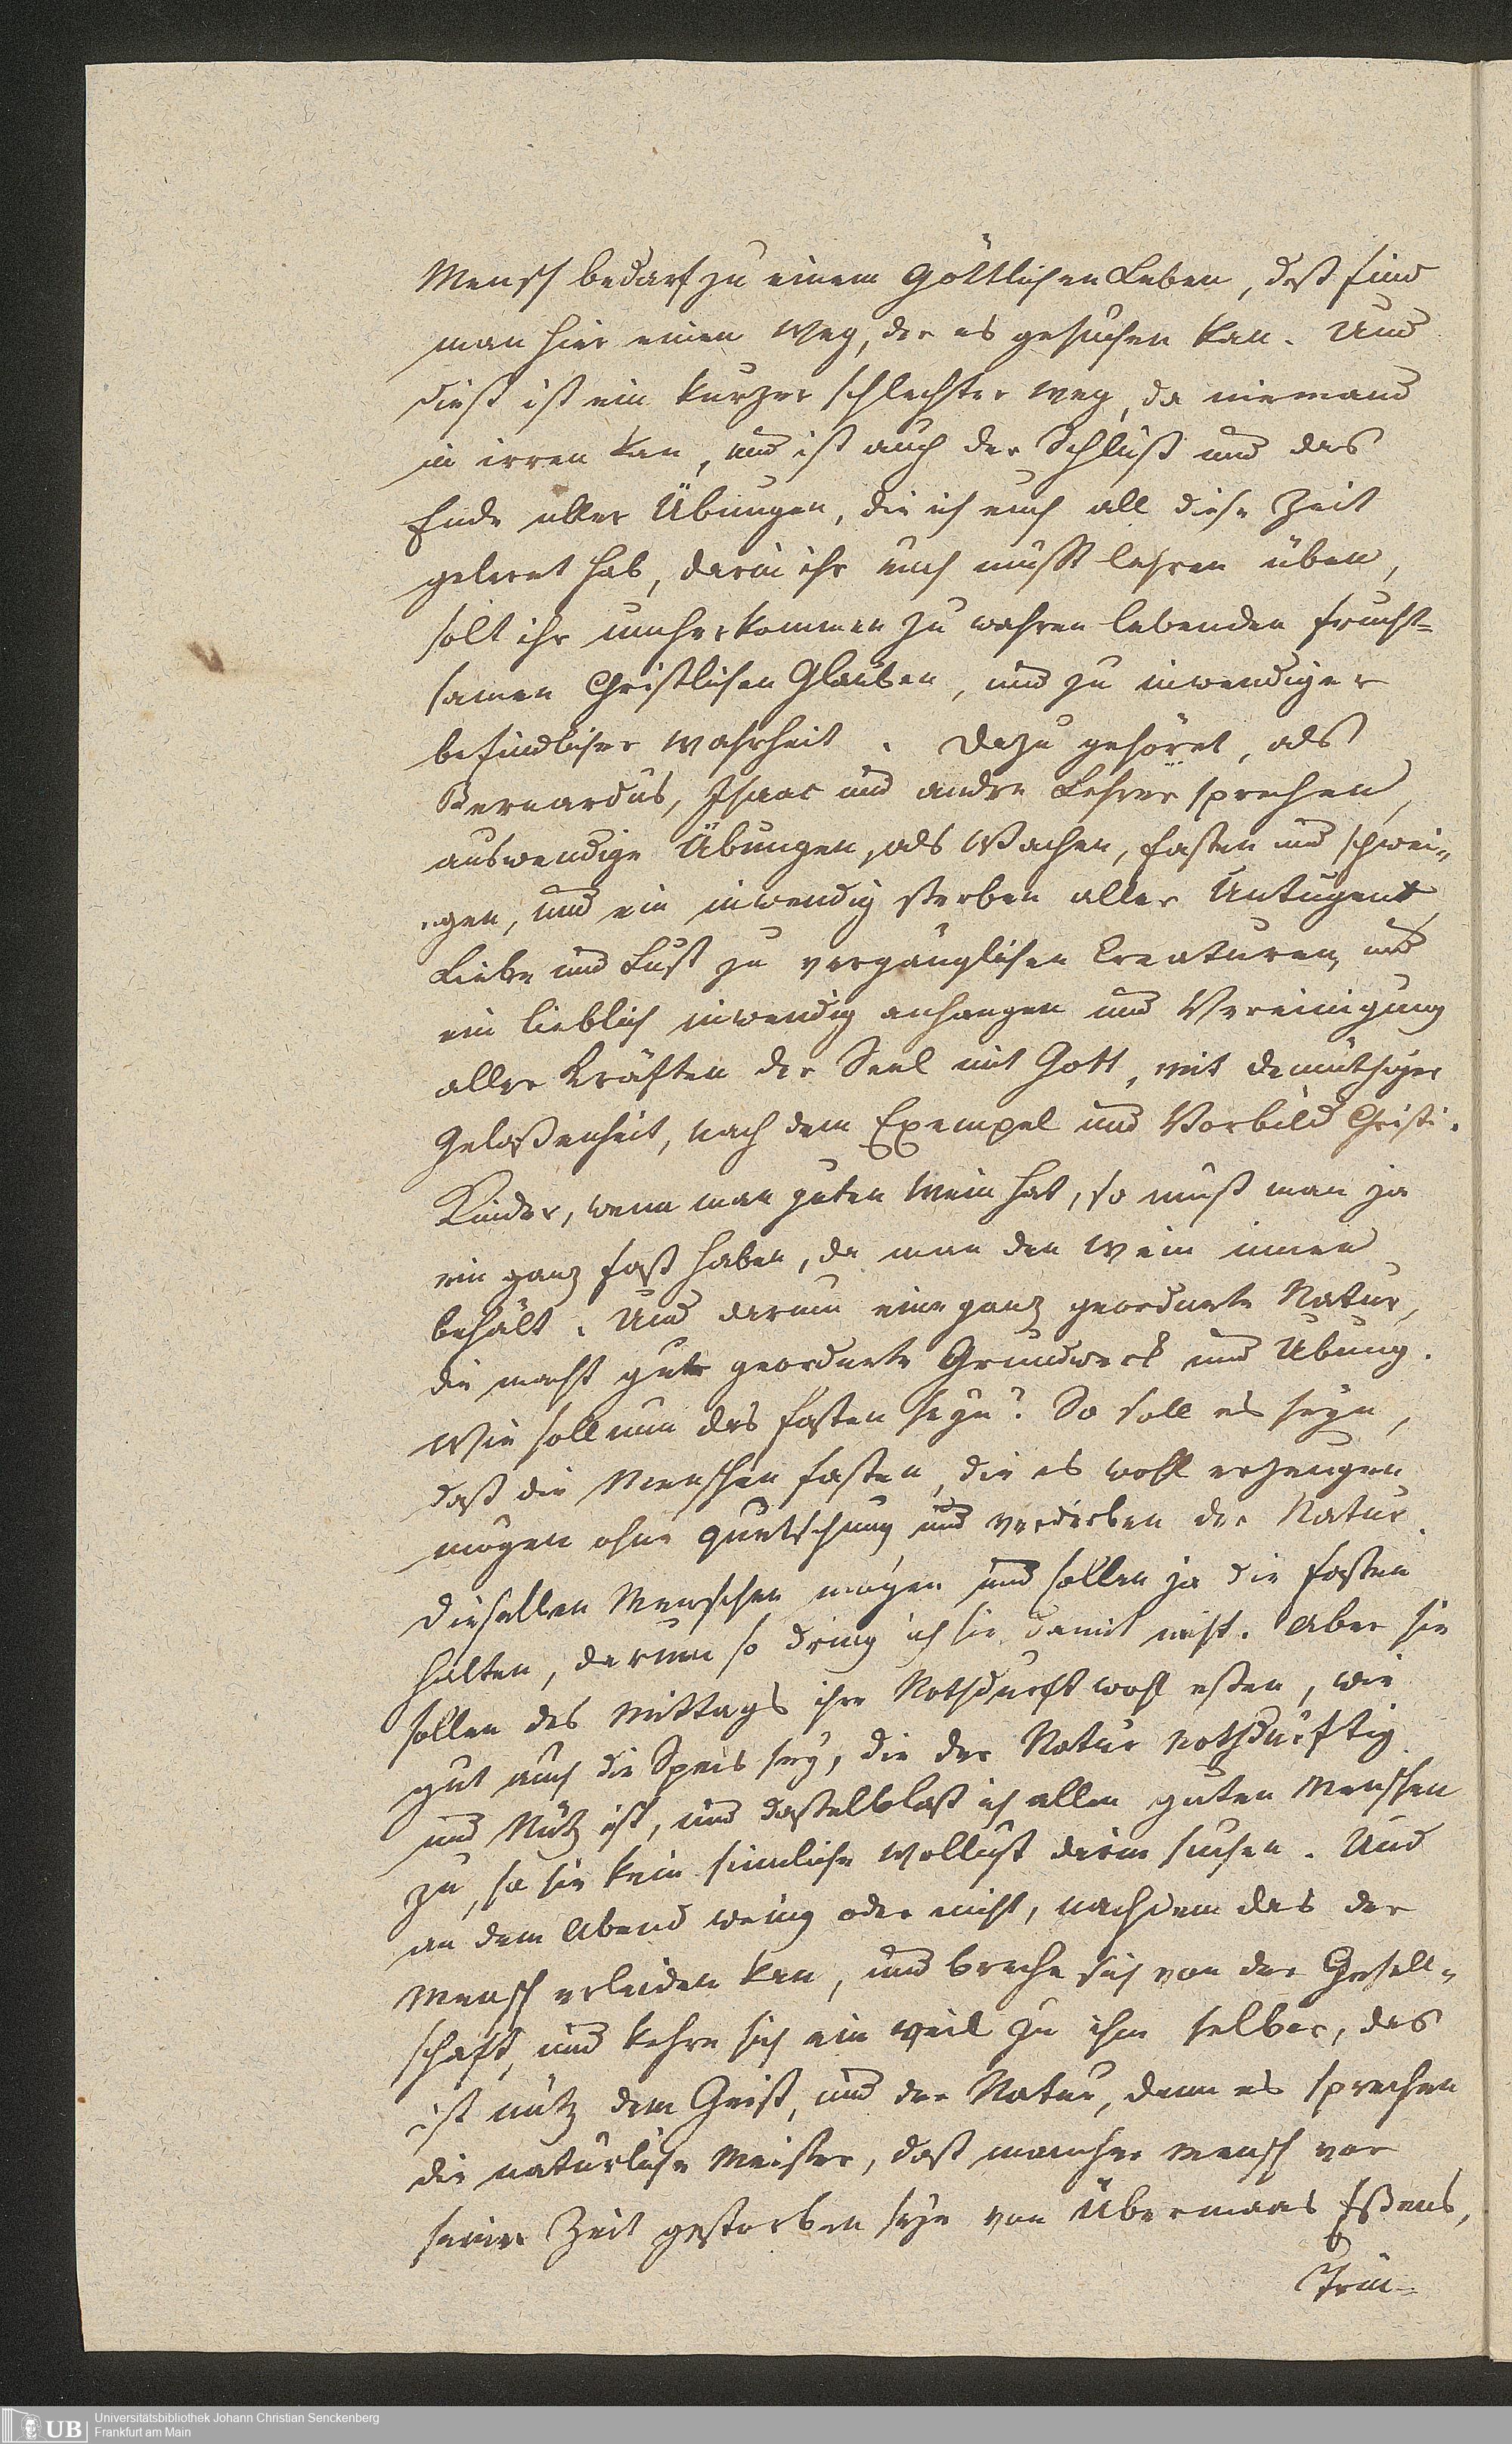 Mensch bedarf zu einem Göttlichen Leben, deß find
man hier einen Weg, der es gesuchen kan. Und
dieß ist ein kurzer schlechter Weg, da niemand
in irren kan, und ist auch der Schluß und das
Ende aller Übungen, die ich euch all diese Zeit
gelernt hab, darin ihr euch müsst lehren üben,
solt ihr immer kommen zu wahren lebenden frucht=
samen Christlichen Glauben, und zu inwendiger
befindlicher Wahrheit. Dazu gehöret, als
Bernardus, Isaac und andre Lehrer sprechen,
auswendige Übungen, als Wachen, Fasten und schwei„
„gen, und ein inwendig sterben aller Untugent
Liebe und Lust zu vergänglichen Creaturen, und
ein lieblich inwendig anhangen und Vereinigung
aller Kräften der Seel mit Gott, mit demüthiger
Gelaßenheit, nach dem Exempel und Vorbild Christi.
Kinder, wenn man guten Wein hat, so muß man ja
ein ganz Faß haben, da man den Wein innen
behält. Und darum eine ganz geordnete Natur,
die macht gute geordnete Grundwerk und Übung.
Wie soll nun das Fasten seyn? So soll es seyn,
daß die Menschen fasten, die es wohl erzeugen
mögen ohne quetschung und verderben der Natur.
Dieselben Menschen mögen und sollen ja die Fasten
halten, darum so dring ich sie damit nicht. Aber sie
sollen des Mittags ihre Nothdurft wohl eßen, wie
gut auch die Speis sey, die der Natur nothdürftig
und Nütz ist, und dasselb laß ich allen guten Menschen
zu, so sie kein sinnliche Wollust darin suchen. Und
an dem Abend wenig oder nicht, nachdem das der
Mensch erleiden kan, und breche sich von der Gesell„
schaft, und kehre sich ein weil zu ihm selber, das
ist nütz dem Geist, und der Natur, denn es sprechen
die natürliche Meister, daß mancher Mensch vor
seiner Zeit gestorben sey von Übermaas Eßens,
Trin=
Universitätsbibliothek Johann Christian Senckenberg
Frankfurt am Main
UB